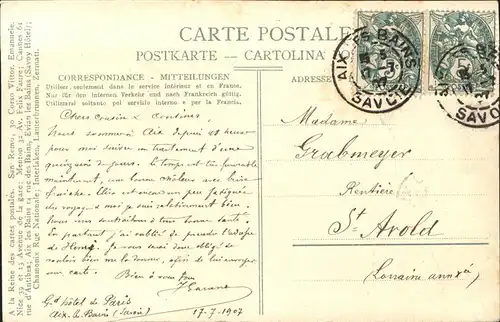 CARTE POSTALE
POSTKARTE - CARTOLINA
CORRESPONDANCE - MITTEILUNGEN
Utilisez seulement dans le service intérieur et en France.
Nur für den innern Verkehr und nach Frankreich gültig.
Utilizzarsi soltanto pel servizio interno e per la Francia.
ADRESSE
AIX-LES-BAINS
SAVOIE
SAVOIE
A la Reine des cartes postales. San Remo, 30 Corso Vittor. Emanuele.
Nice 39 et 13 Avenue de la gare; Menton 32 Av. Félix Faure; Cannes 61
rue d'Antibes; Aix les Bains 14 rue des Bains, Evian les Bains (Savoy Hôtel);
Chamonix Rue Nationale; Interlaken, Lauterbrunnen, Zermatt.
Chers cousin & cousines
Nous sommes à Aix depuis et heures
pour moi suivre un traitement d'une
quinzaine de jours. Le temps est favorable
maintenant, une bonne chaleur avec bise
fraîche. Elle est avant un peu fatiguée
du voyage & moi relativement bien.
Nous vous souhaitons à tous bonne santé.
En partant, j'ai oublié de prendre l'adresse
de Henri. Je vous serai donc obligé de
vouloir bien me la donner, afin de lui envoyer
une carte. Bien à vous tous
Gd hôtel de Paris
Aix-les-Bains (Savoie) 17-7-1907
Madame
Grabmeyer
Rentière
St Avold
(Lorraine annexée)